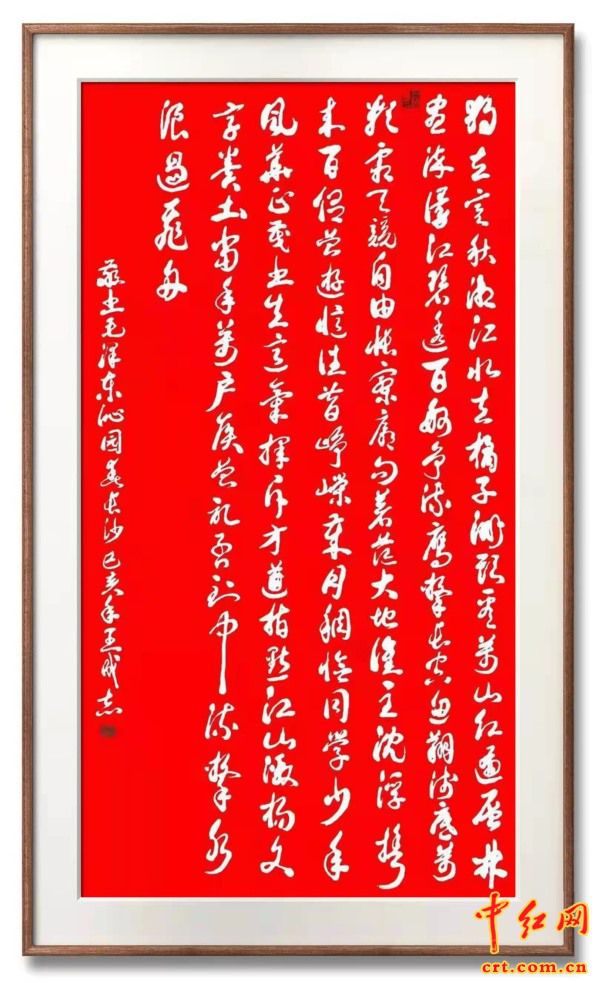 独立寒秋湘江北去橘子洲头看万山红遍层林
尽染漫江碧透百舸争流鹰击长空鱼翔浅底万
类霜天競自由怅寥廓问苍茫大地谁主沉浮携
来百侣曾遊忆往昔峥嵘岁月稠恰同学少年
风华正茂书生意氣挥斥方遒指点江山激扬文
字粪土当年万户侯曾记否到中流击水
浪遏飞舟
敬书毛泽东沁园春长沙己亥年王成志
中红网
crt.com.cn